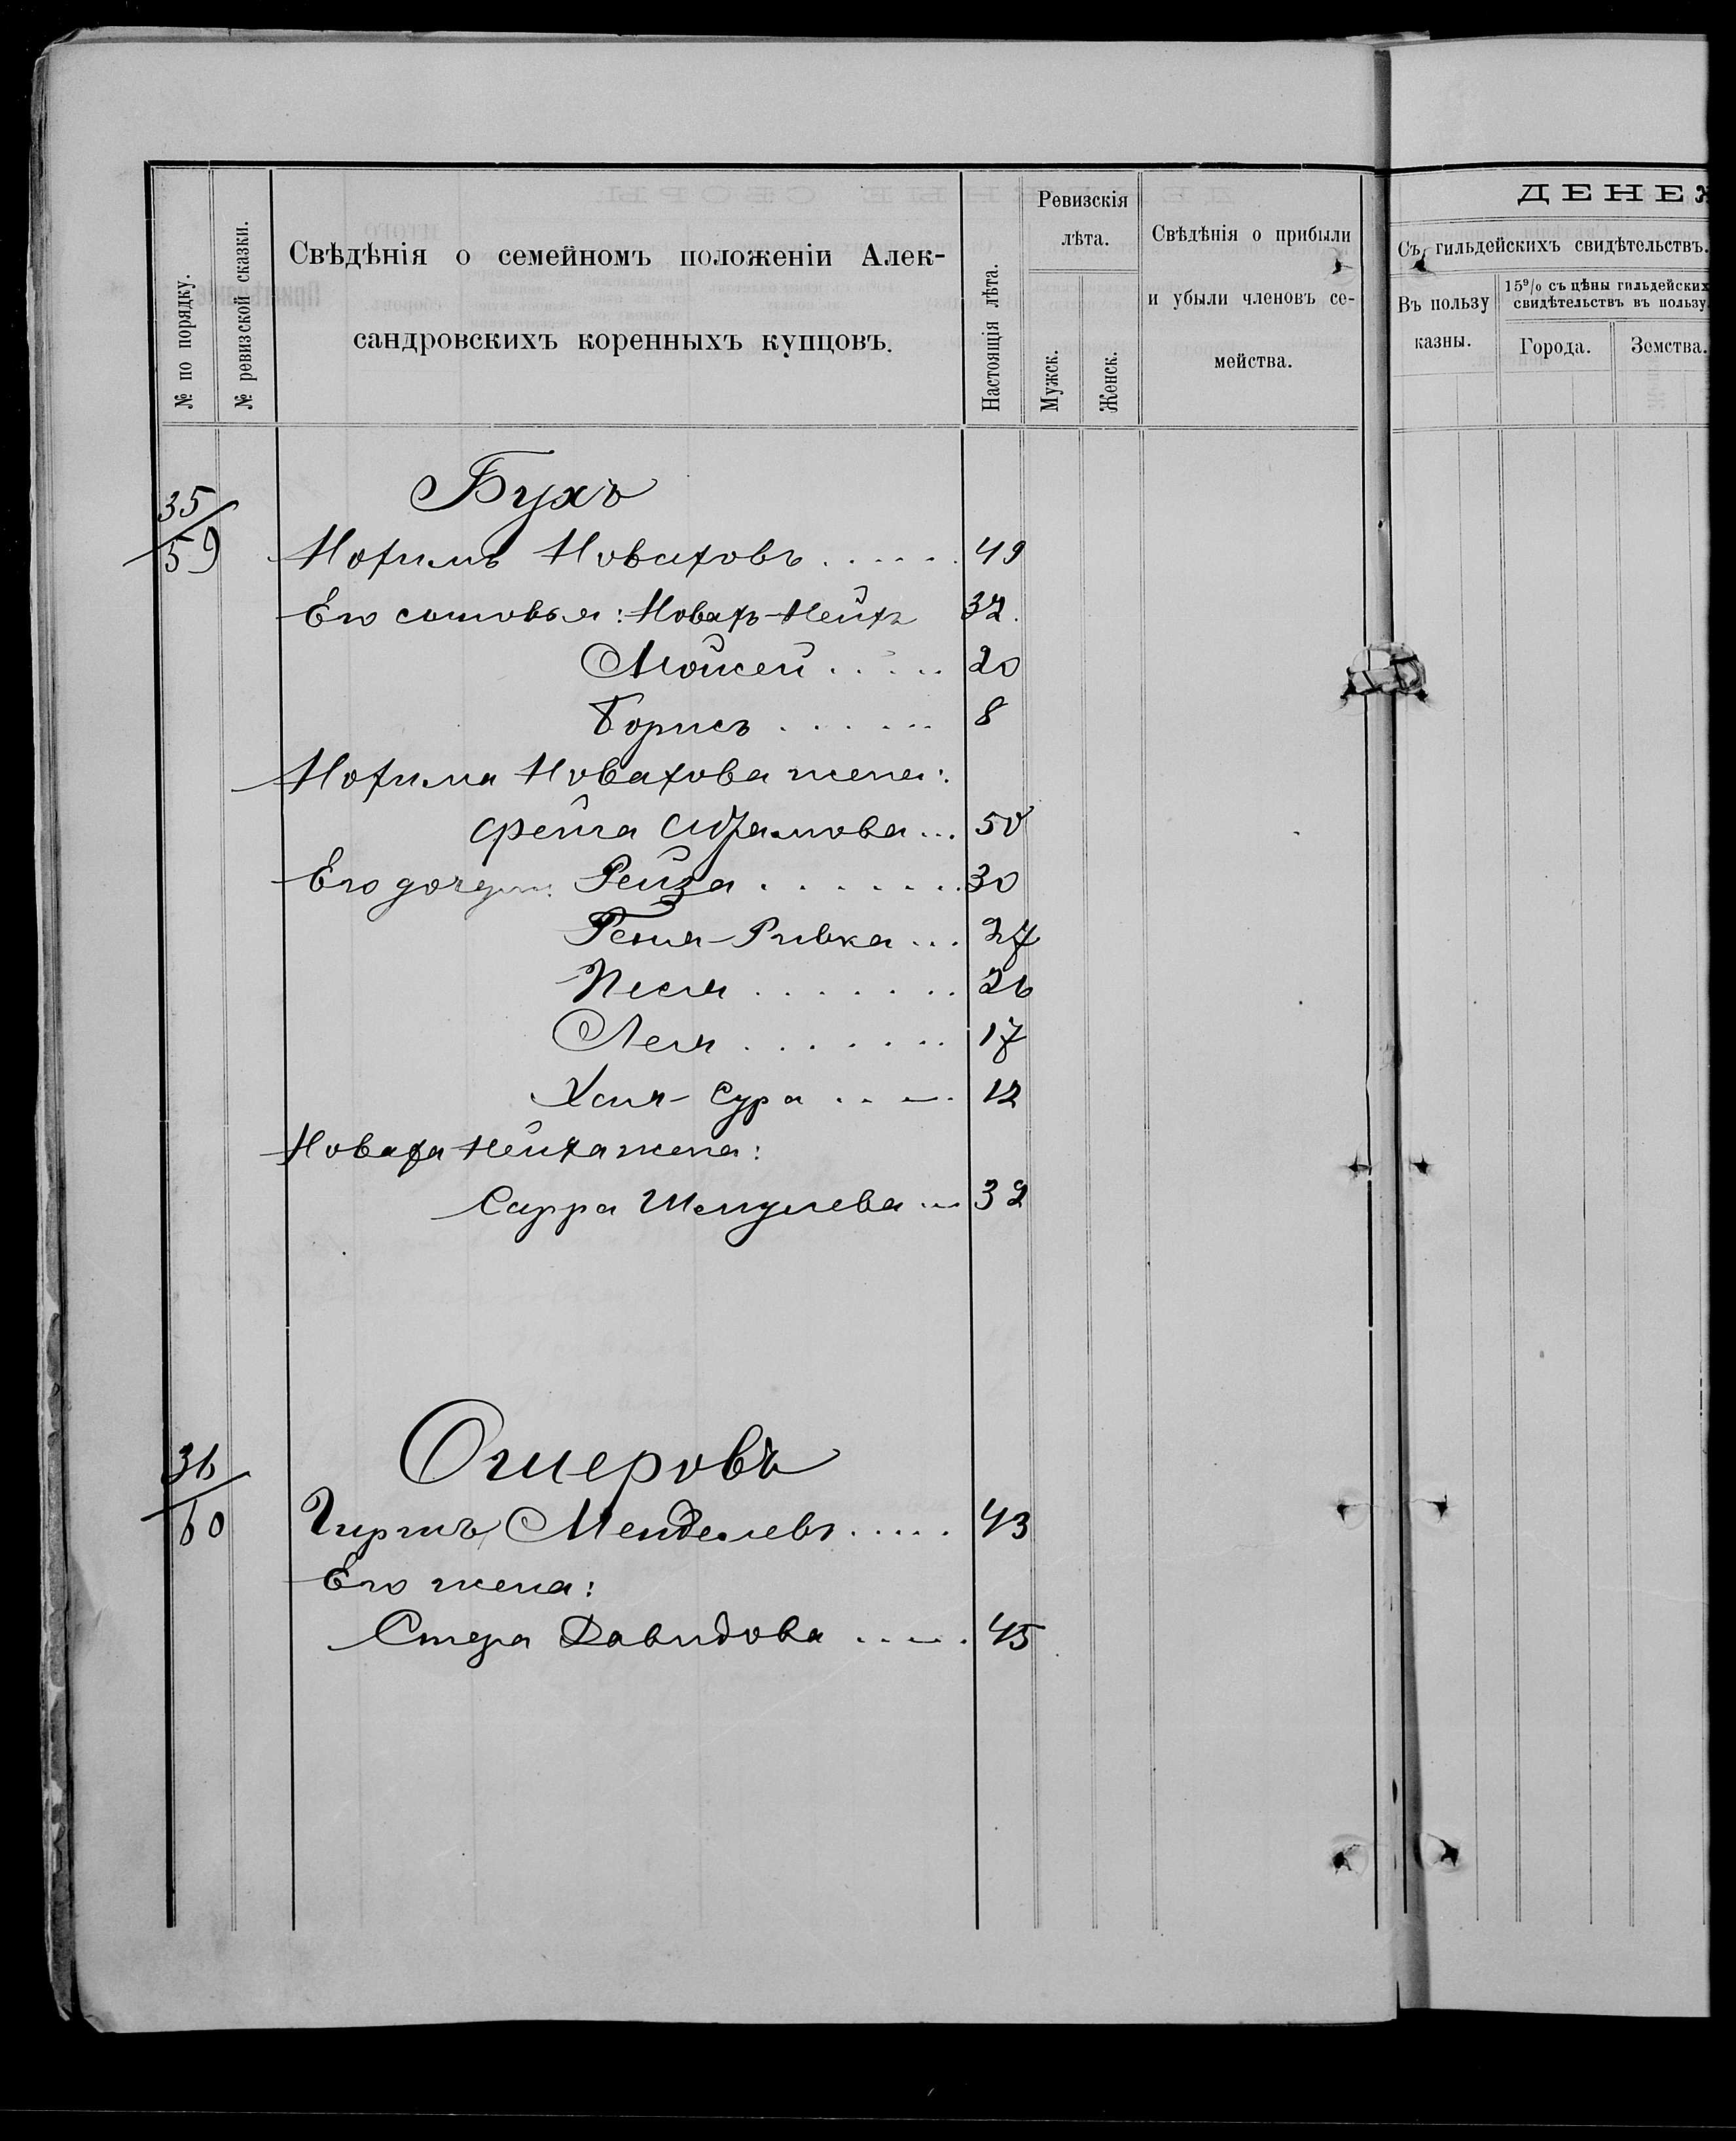 № по порядку.
№ ревизской сказки.
Свѣдѣнія о семейномъ положеніи Алек-
сандровскихъ коренныхъ купцовъ.
Настоящія лѣта.
Ревизскія
лѣта.
Мужск.
Женск.
Свѣдѣнія о прибыли
и убыли членовъ се-
мейства.
ДЕНЕЖ
Съ гильдейскихъ свидѣтельствъ.
Въ пользу
казны.
15% съ цѣны гильдейских
свидѣтельствъ въ пользу
Города.
Земства.
35/59
Бухъ
Нохимъ Новаховъ . . . . . 49
Его сыновья: Новахъ-Нейхъ 32.
Мойсей . . . . . 20
Борисъ . . . . . . 8
Нохима Новахова жена:
Фейга Абрамова . . . 50
Его дочери: Рейза . . . . . . . 30
Геня-Ривка . . . 27
Песя . . . . . . . 26
Лея . . . . . . . 17
Хая-Сура . . . . 12
Новаха Нейха жена:
Сарра Шмулева . . . 32
36/60
Ошеровъ
Гиршъ Менделевъ . . . . . 43
Его жена:
Стера Давидова . . . . . 45